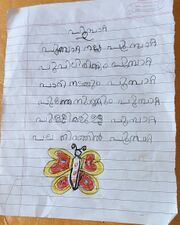 പൂമ്പാറ്റ
പൂമ്പാറ്റ നല്ല പൂമ്പാറ്റ
പൂവിലിരിക്കും പൂമ്പാറ്റ
പാറി നടക്കും പൂമ്പാറ്റ
പൂമ്പാറ്റ
പുള്ളികളുള്ള പൂമ്പാറ്റ
പല നിറത്തിൽ പൂമ്പാറ്റ